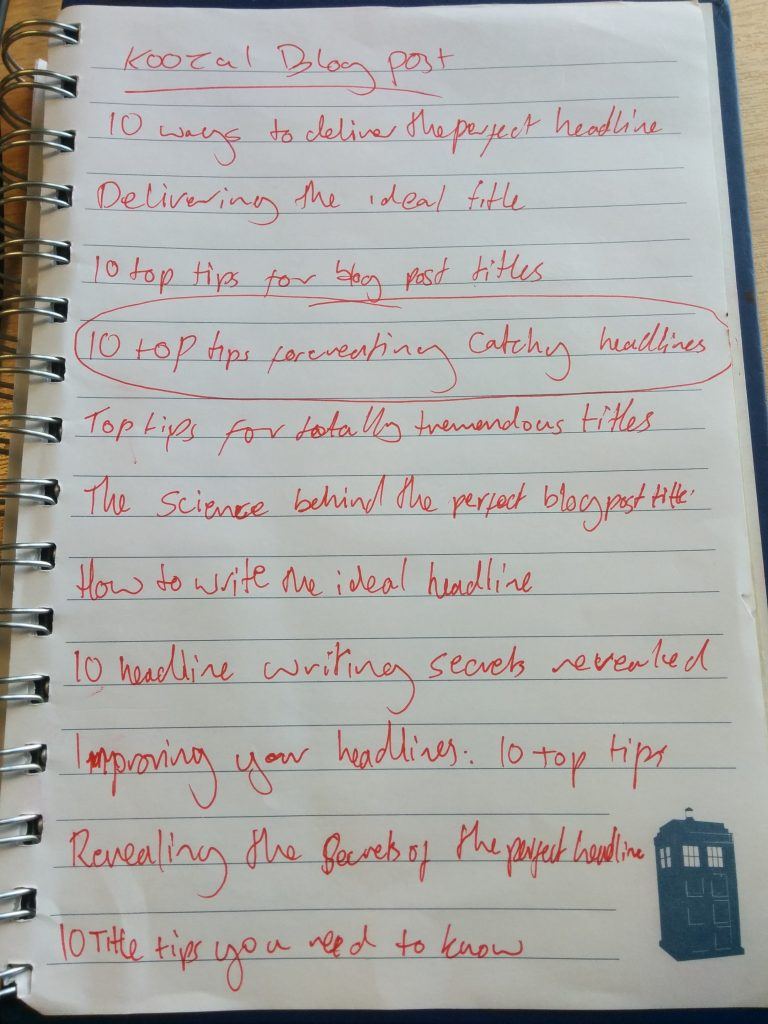 Koozal Blog post
10 ways to deliver the perfect headline
Delivering the ideal title
10 top tips for blog post titles
10 top tips for creating catchy headlines
Top tips for totally tremendous titles
The science behind the perfect blog post title.
How to write the ideal headline
10 headline writing secrets revealed
Improving your headlines: 10 top tips
Revealing the secrets of the perfect headline
10 Title tips you need to know